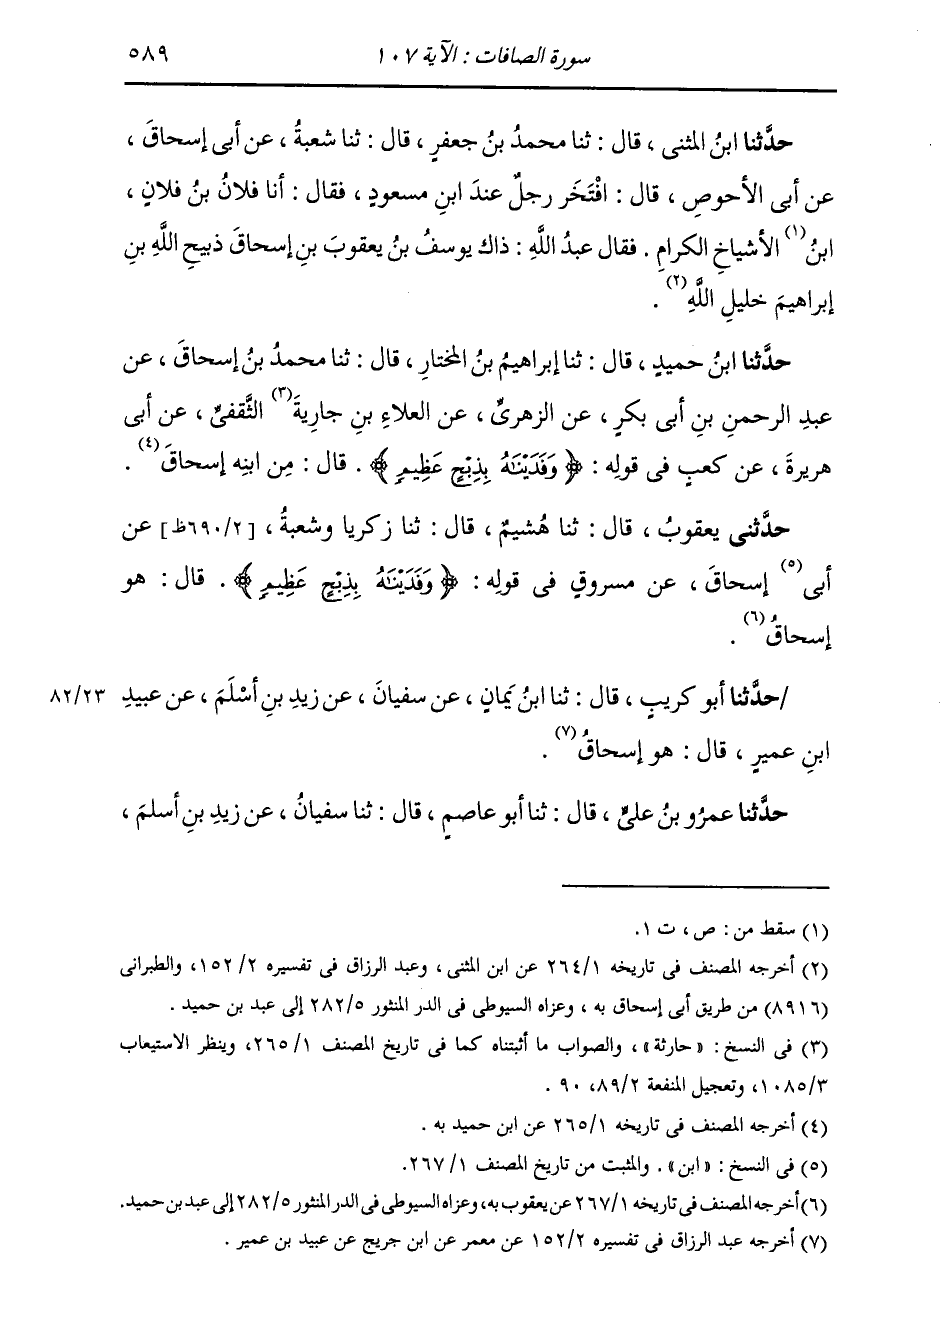 سورة الصافات : الآية ١٠٧ ٥٨٩
حدَّثنا ابنُ المثنى ، قال : ثنا محمدُ بنُ جعفرٍ ، قال : ثنا شعبةُ ، عن أبى إسحاقَ ،
عن أبى الأحوصِ ، قال : افْتَخَر رجلٌ عندَ ابنِ مسعودٍ ، فقال : أنا فلانُ بنُ فلانٍ ،
ابنُ(١) الأشياخِ الكرامِ . فقال عبدُ اللَّهِ : ذاك يوسفُ بنُ يعقوبَ بنِ إسحاقَ ذبيحِ اللَّهِ بنِ
إبراهيمَ خليلِ اللَّهِ(٢) .
حدَّثنا ابنُ حميدٍ ، قال : ثنا إبراهيمُ بنُ المختارِ ، قال : ثنا محمدُ بنُ إسحاقَ ، عن
عبدِ الرحمنِ بنِ أبى بكرٍ ، عن الزهرىِّ ، عن العلاءِ بنِ جاريةَ(٣) الثَّقفىِّ ، عن أبى
هريرةَ ، عن كعبٍ فى قولِه : ﴿ وَفَدَيْنَٰهُ بِذِبْحٍ عَظِيمٍ ﴾ . قال : مِن ابنِه إسحاقَ(٤) .
حدَّثنى يعقوبُ ، قال : ثنا هُشيمٌ ، قال : ثنا زكريا وشعبةُ ، [٦٩٠/٢ظ] عن
أبى(٥) إسحاقَ ، عن مسروقٍ فى قولِه : ﴿ وَفَدَيْنَٰهُ بِذِبْحٍ عَظِيمٍ ﴾ . قال : هو
إسحاقُ(٦) .
/حدَّثنا أبو كريبٍ ، قال : ثنا ابنُ يَمانٍ ، عن سفيانَ ، عن زيدِ بنِ أسْلَمَ ، عن عبيدِ ٨٢/٢٣
ابنِ عميرٍ ، قال : هو إسحاقُ(٧) .
حدَّثنا عمرُو بنُ علىٍّ ، قال : ثنا أبو عاصمٍ ، قال : ثنا سفيانُ ، عن زيدِ بنِ أسلمَ ،
(١) سقط من : ص ، ت ١.
(٢) أخرجه المصنف فى تاريخه ٢٦٤/١ عن ابن المثنى ، وعبد الرزاق فى تفسيره ١٥٢/٢، والطبرانى
(٨٩١٦) من طريق أبى إسحاق به ، وعزاه السيوطى فى الدر المنثور ٢٨٢/٥ إلى عبد بن حميد .
(٣) فى النسخ : «حارثة» ، والصواب ما أثبتناه كما فى تاريخ المصنف ٢٦٥/١، وينظر الاستيعاب
١٠٨٥/٣، وتعجيل المنفعة ٨٩/٢، ٩٠ .
(٤) أخرجه المصنف فى تاريخه ٢٦٥/١ عن ابن حميد به .
(٥) فى النسخ : «ابن» . والمثبت من تاريخ المصنف ٢٦٧/١.
(٦) أخرجه المصنف فى تاريخه ٢٦٧/١ عن يعقوب به، وعزاه السيوطى فى الدر المنثور ٢٨٢/٥ إلى عبد بن حميد.
(٧) أخرجه عبد الرزاق فى تفسيره ١٥٢/٢ عن معمر عن ابن جريج عن عبيد بن عمير .